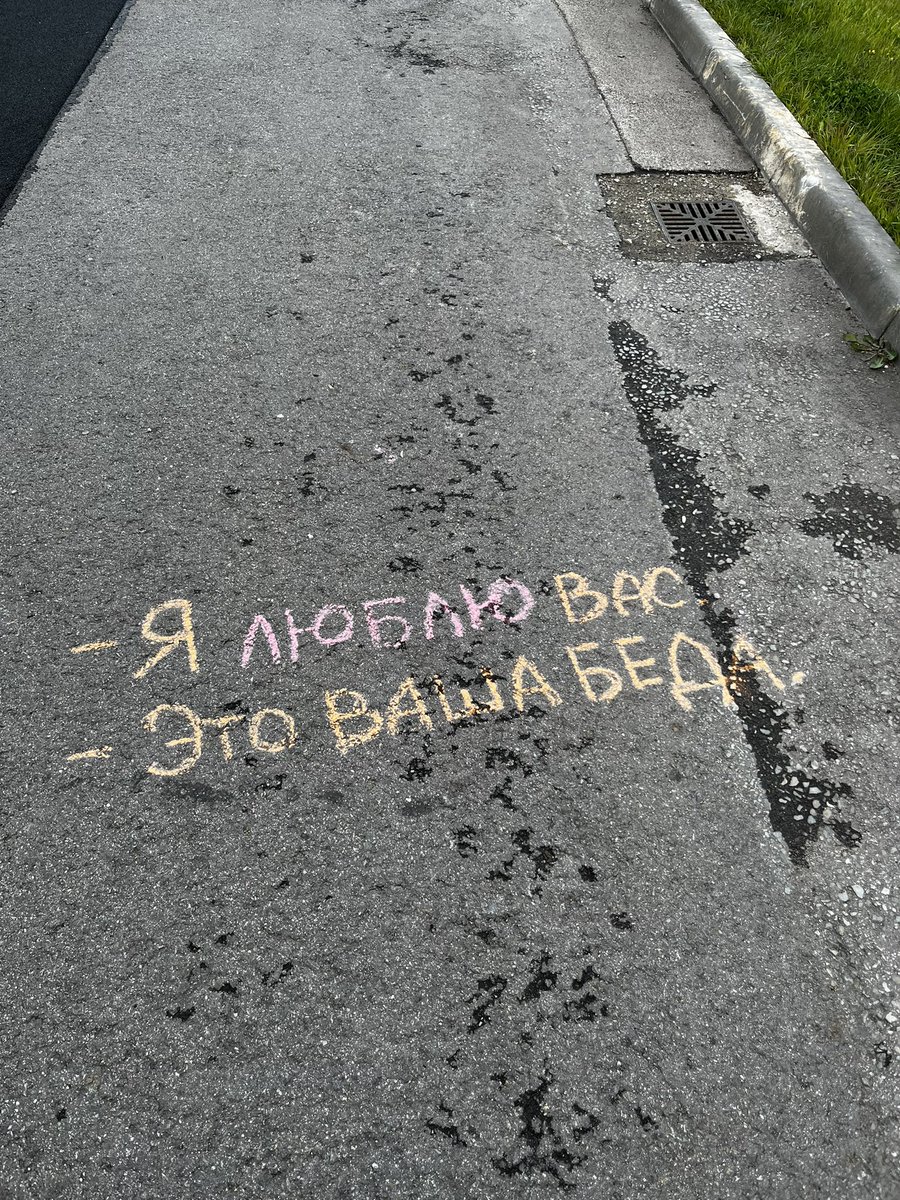 - Я ЛЮБЛЮ ВАС
- ЭТО ВАША БЕДА.